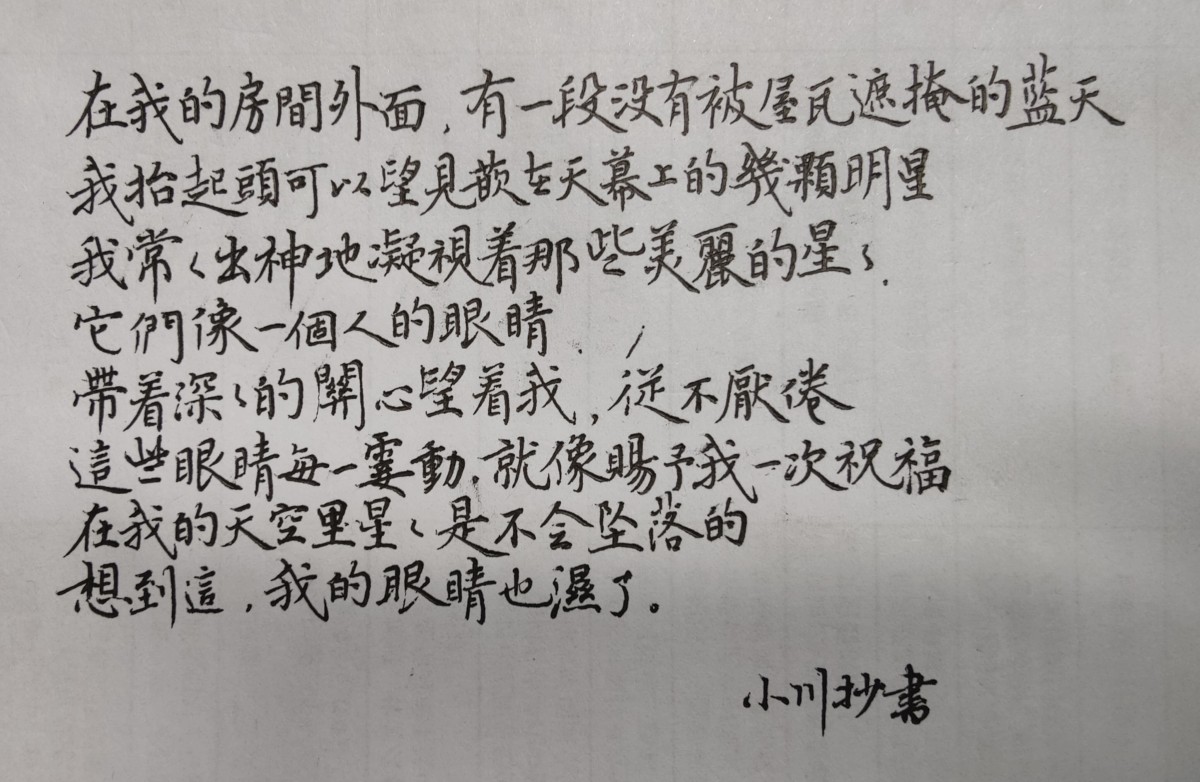 在我的房間外面，有一段没有被屋瓦遮掩的蓝天
我抬起頭可以望見嵌在天幕上的幾顆明星
我常々出神地凝視着那些美麗的星々.
它們像一個人的眼睛.
帶着深々的關心望着我，從不厭倦
這些眼睛每一霎動，就像賜予我一次祝福
在我的天空里星々是不会坠落的
想到這，我的眼睛也濕了。
小川抄書